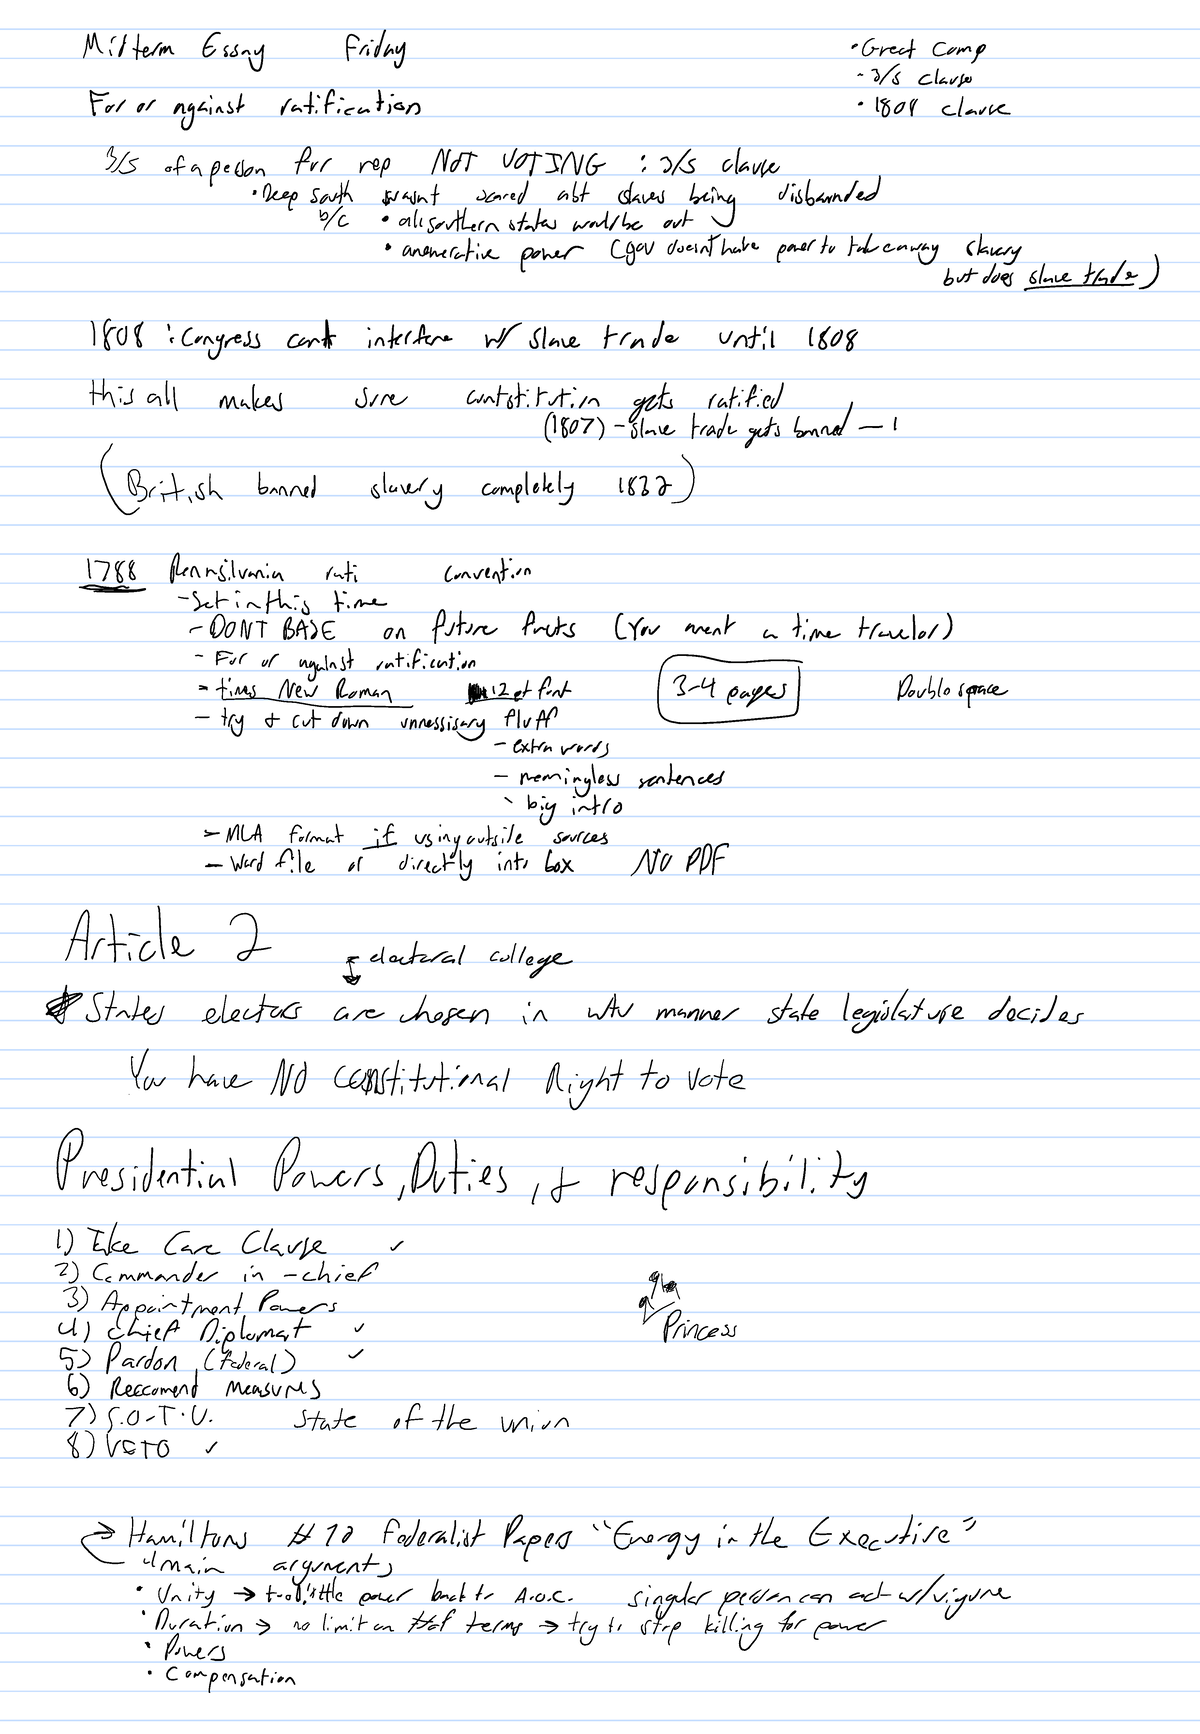 Midterm Essay Friday
• Great Comp
- 3/5 clause
• 1808 clause
For or against ratification
3/5 of a person for rep NOT VOTING : 3/5 clause
• Deep South wasnt scared abt slaves being disbanded
b/c • all southern states would be out
• enumerative power (gov doesnt have power to take away slavery
but does slave trade)
1808 : Congress cant interfere w/ slave trade until 1808
this all makes sure contstitution gets ratified
(1807) - slave trade gets banned
(British banned slavery completely 1832)
1788 Pennsilvania rati convention
- Set in this time
- DONT BASE on future facts (You arent a time travelor)
- For or against ratification
- times New Roman 12 pt font 3-4 pages Double space
- try & cut down unnessisary fluff
- extra words
- meaningless sentences
- big intro
- MLA format if using outside sources
- Word file or directly into box NO PDF
Article 2
electoral college
States electors are chosen in wtv manner state legislature decides
You have NO constitutional Right to vote
Presidential Powers, Duties, & responsibility
1) Take Care Clause ✓
2) Commander in -chief
3) Appointment Powers
4) Chief Diplomat ✓
5) Pardon (federal) ✓
6) Reccomend Measures
7) S.O.T.U. State of the union
8) VETO ✓
Princess
→ Hamiltons #70 Federalist Paper "Energy in the Executive"
4 main arguments
• Unity → too little power back to A.O.C. singular person can act w/ vigure
• Duration → no limit on # of terms → try to stop killing for power
• Powers
• Compensation